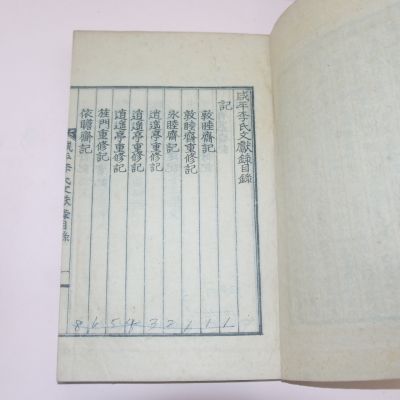 咸平李氏文獻錄目錄
記 1
敦睦齋記 1
敦睦齋重修記 1
永睦齋記 2
逍遙亭記 3
逍遙亭重修記 4
逍遙亭重修記 5
旌門重修記 6
依瞻齋記 8
咸平李氏文獻錄目錄 一